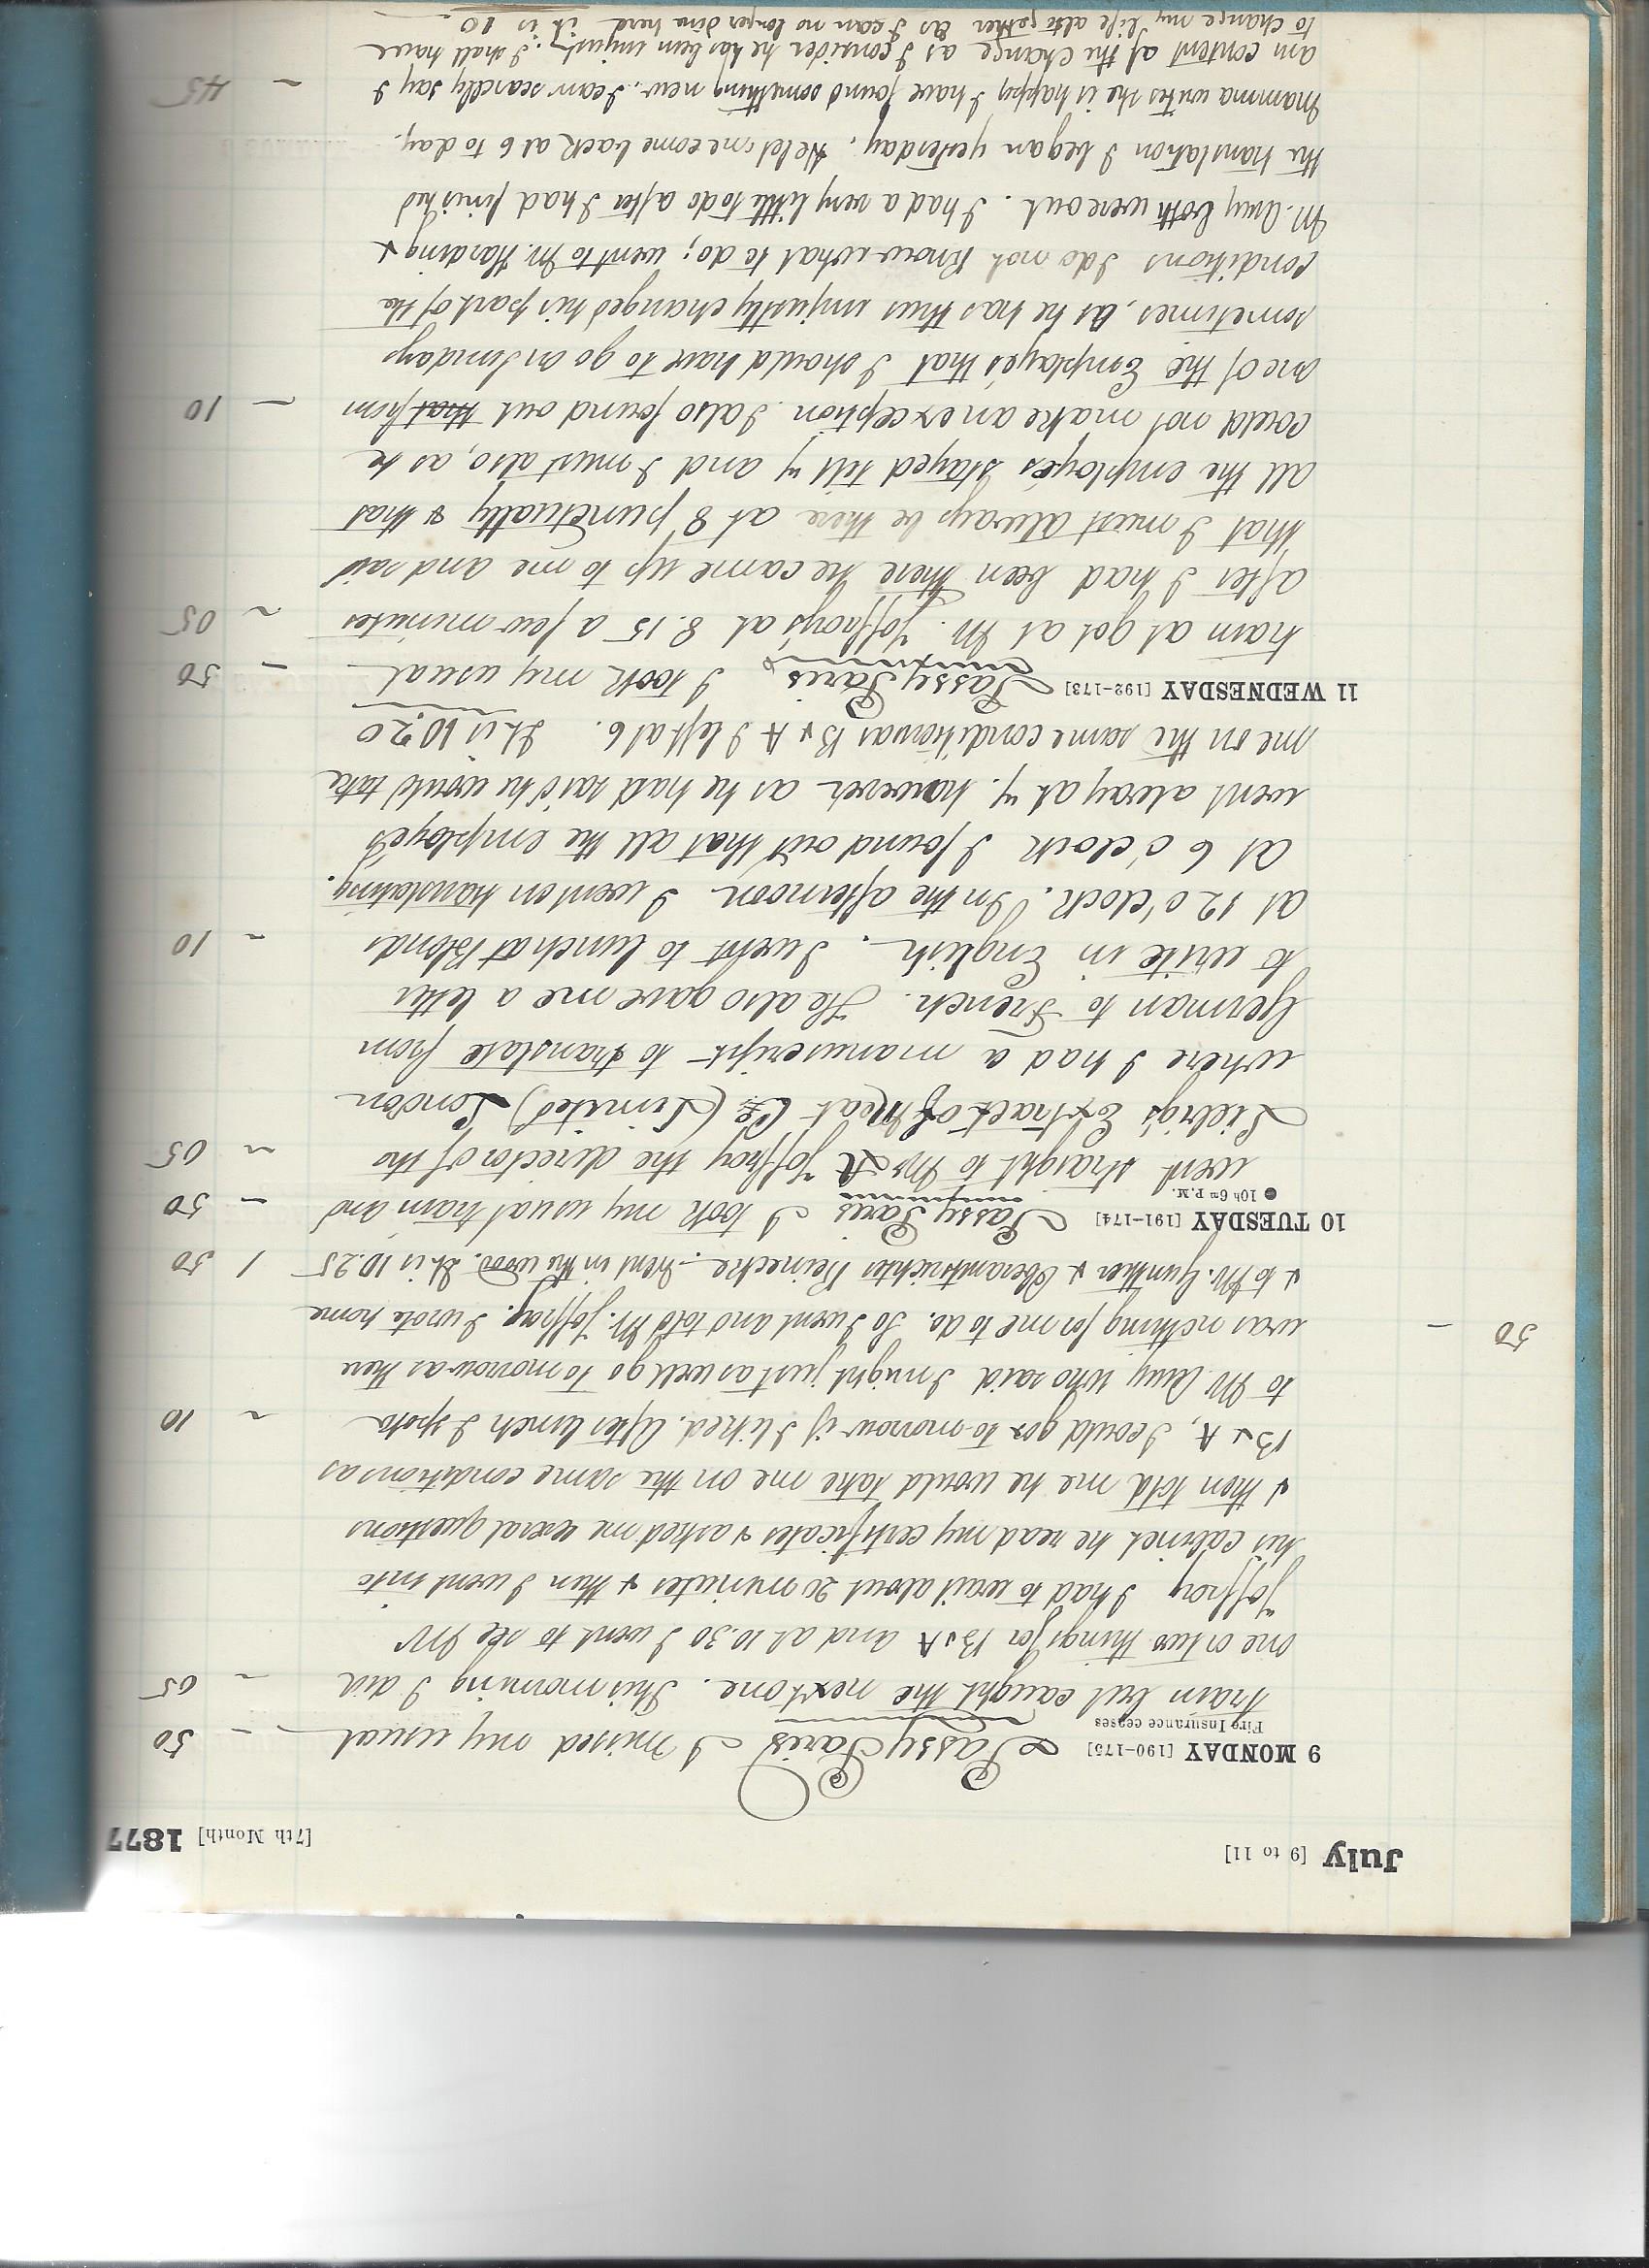 July [9 to 11] [7th Month] 1877
9 MONDAY [190-175] Passy Paris I missed my usual — 50
Fire Insurance ceases
train but caught the next one. This morning I did ~ 05
one or two things for B & A and at 10.30 I went to see Mr
Joffroy I had to wait about 20 minutes & then I went into
his cabinet he read my certificates & asked me several questions
& then told me he would take me on the same conditions as
B & A, I could go to-morrow if I liked. After lunch I spoke ~ 10
to M. Amy who said I might just as well go to morrow as there
50 — was nothing for me to do. So I went and told M. Joffroy. I wrote home
& to Mr. Gunther & Oberamtsrichter Reinecke. Went in the wood. It is 10.25 1 50
10 TUESDAY [191-174] Passy Paris I took my usual train and — 50
● 10h 6m P.M.
went straight to Mr Joffroy the director of the ~ 05
Liebig's Extract of Meat Co (Limited) London
where I had a manuscript to translate from
German to French. He also gave me a letter
to write in English. I went to lunch at Blonds ~ 10
at 12 o'clock. In the afternoon I went on translating.
At 6 o'clock I found out that all the employés
went away at 7. however as he had said he would take
me on the same condition as B & A I left at 6. It is 10.20
11 WEDNESDAY [192-173] Passy Paris. I took my usual — 50
train at got at M. Joffroy's at 8.15 a few minutes ~ 05
after I had been there he came up to me and said
that I must always be there at 8 punctually & that
all the employés stayed till 7 and I must also, as he
could not make an exception. I also found out that from — 10
one of the Employés that I should have to go on Sundays
sometimes. As he has thus unjustly changed his part of the
conditions I do not know what to do; went to Mr. Harding &
M. Amy both were out. I had a very little to do after I had finished
the translation I began yesterday. He let me come back at 6 to day.
Mamma writes she is happy I have found something new. I can scarcely say I ~ 45
am content at the change as I consider he has been unjust; I shall have
to change my life altogether as I can no longer dine here it is 10